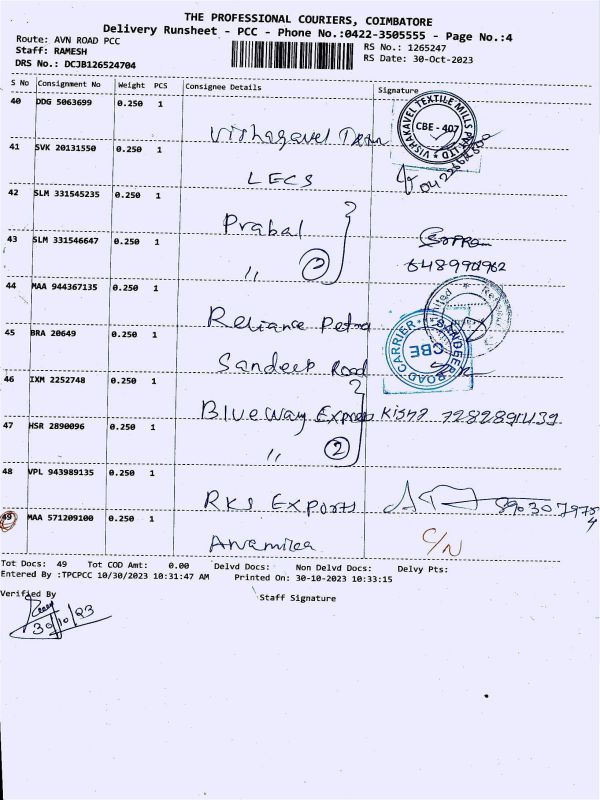 THE PROFESSIONAL COURIERS, COIMBATORE
Delivery Runsheet - PCC - Phone No.:0422-3505555 - Page No.:4
Route: AVN ROAD PCC
RS No.: 1265247
Staff: RAMESH
RS Date: 30-Oct-2023
DRS No.: DCJB126524704
S No Consignment No Weight PCS Consignee Details Signature
40 DDG 5063699 0.250 1
VISHAKAVEL TEXTILE MILLS PVT LTD
CBE - 407
41 SVK 20131550 0.250 1
LECS
42 SLM 331545235 0.250 1
Prabal
43 SLM 331546647 0.250 1
" 2
44 MAA 944367135 0.250 1
Reliance Petro
45 BRA 20649 0.250 1
Sandeep Road
SANDEEP ROAD CARRIER
CBE
46 IXM 2252748 0.250 1
Blueway Express
47 HSR 2890096 0.250 1
" 2
48 VPL 943989135 0.250 1
RKS Exports
49 MAA 571209100 0.250 1
C/N
Tot Docs: 49 Tot COD Amt: 0.00 Delvd Docs: Non Delvd Docs: Delvy Pts:
Entered By :TPCPCC 10/30/2023 10:31:47 AM Printed On: 30-10-2023 10:33:15
Verified By
Staff Signature
30/10/23